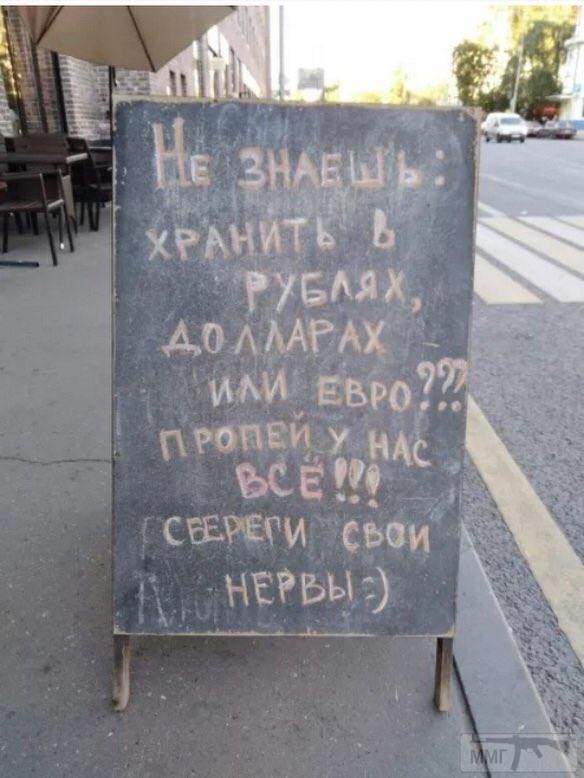 Не знаешь:
хранить в
рублях,
долларах
или евро???
пропей у нас
ВСЁ!!!
сбереги свои
нервы:)
ММГ